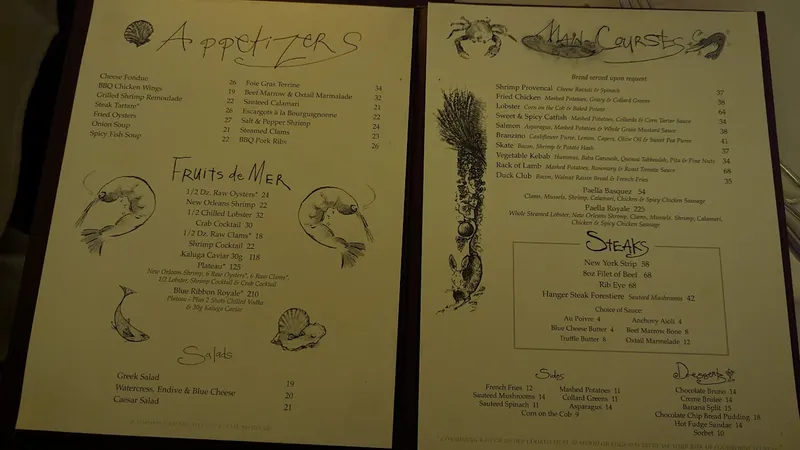 Appetizers
Cheese Fondue 26
BBQ Chicken Wings 19
Grilled Shrimp Remoulade 22
Steak Tartare* 26
Fried Oysters 27
Onion Soup 21
Spicy Fish Soup 22
Foie Gras Terrine 34
Beef Marrow & Oxtail Marmalade 32
Sauteed Calamari 21
Escargots à la Bourguignonne 22
Salt & Pepper Shrimp 24
Steamed Clams 23
BBQ Pork Ribs 26
Fruits de Mer
1/2 Dz. Raw Oysters* 24
New Orleans Shrimp 22
1/2 Chilled Lobster 32
Crab Cocktail 30
1/2 Dz. Raw Clams* 18
Shrimp Cocktail 22
Kaluga Caviar 30g 118
Plateau* 125
New Orleans Shrimp, 6 Raw Oysters*, 6 Raw Clams*,
1/2 Lobster, Shrimp Cocktail & Crab Cocktail
Blue Ribbon Royale* 210
Plateau - Plus 2 Shots Chilled Vodka
& 30g Kaluga Caviar
Salads
Greek Salad 19
Watercress, Endive & Blue Cheese 20
Caesar Salad 21
Main Courses
Bread served upon request
Shrimp Provencal Cheese Ravioli & Spinach 37
Fried Chicken Mashed Potatoes, Gravy & Collard Greens 38
Lobster Corn on the Cob & Baked Potato 64
Sweet & Spicy Catfish Mashed Potatoes, Collards & Corn Tartar Sauce 34
Salmon Asparagus, Mashed Potatoes & Whole Grain Mustard Sauce 38
Branzino Cauliflower Puree, Lemon, Capers, Olive Oil & Sweet Pea Puree 41
Skate Bacon, Shrimp & Potato Hash 37
Vegetable Kebab Hummus, Baba Ganoush, Quinoa Tabbouleh, Pita & Pine Nuts 34
Rack of Lamb Mashed Potatoes, Rosemary & Roast Tomato Sauce 68
Duck Club Bacon, Walnut Raisin Bread & French Fries 35
Paella Basquez 54
Clams, Mussels, Shrimp, Calamari, Chicken & Spicy Chicken Sausage
Paella Royale 225
Whole Steamed Lobster, New Orleans Shrimp, Clams, Mussels, Shrimp, Calamari,
Chicken & Spicy Chicken Sausage
Steaks
New York Strip 58
8oz Filet of Beef 68
Rib Eye 68
Hanger Steak Forestiere Sauteed Mushrooms 42
Choice of Sauce:
Au Poivre 4 Anchovy Aioli 4
Blue Cheese Butter 4 Beef Marrow Bone 8
Truffle Butter 8 Oxtail Marmalade 12
Sides
French Fries 12
Sauteed Mushrooms 14
Sauteed Spinach 11
Mashed Potatoes 11
Collard Greens 11
Asparagus 14
Corn on the Cob 9
Desserts
Chocolate Bruno 14
Creme Brulee 14
Banana Split 15
Chocolate Chip Bread Pudding 18
Hot Fudge Sundae 14
Sorbet 10